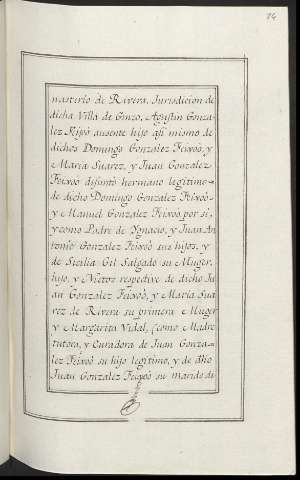 24
nasterio de Rivera, Jurisdicion de
dicha Villa de Ginzo, Agustin Gonza-
lez Feijoó ausente hijo asi mismo de
dichos Domingo Gonzalez Feixoó, y
Maria Suarez, y Juan Gonzalez
Feixoó difunto hermano legitimo
de dicho Domingo Gonzalez Feixoó-
y Manuel Gonzalez Feixoó por si,
y como Padre de Ygnacio, y Juan An
tonio Gonzalez Feixoó sus hijos, y
de Sicilia Gil Salgado su Muger,
hijo, y Nietos respective de dicho Ju
an Gonzalez Feixoó, y Maria Sua
rez de Rivera su primera Muger
y Margarita Vidal, como Madre
tutora, y Curadora de Juan Gonza-
lez Feixoó su hijo legitimo, y de dho
Juan Gonzalez Feixoó su marido di